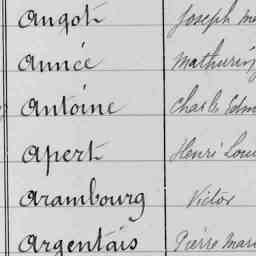 Angot Joseph
Année Mathurin
Antoine Charles Edm
Apert Henri Loui
Arambourg Victor
Argentais Pierre Mari